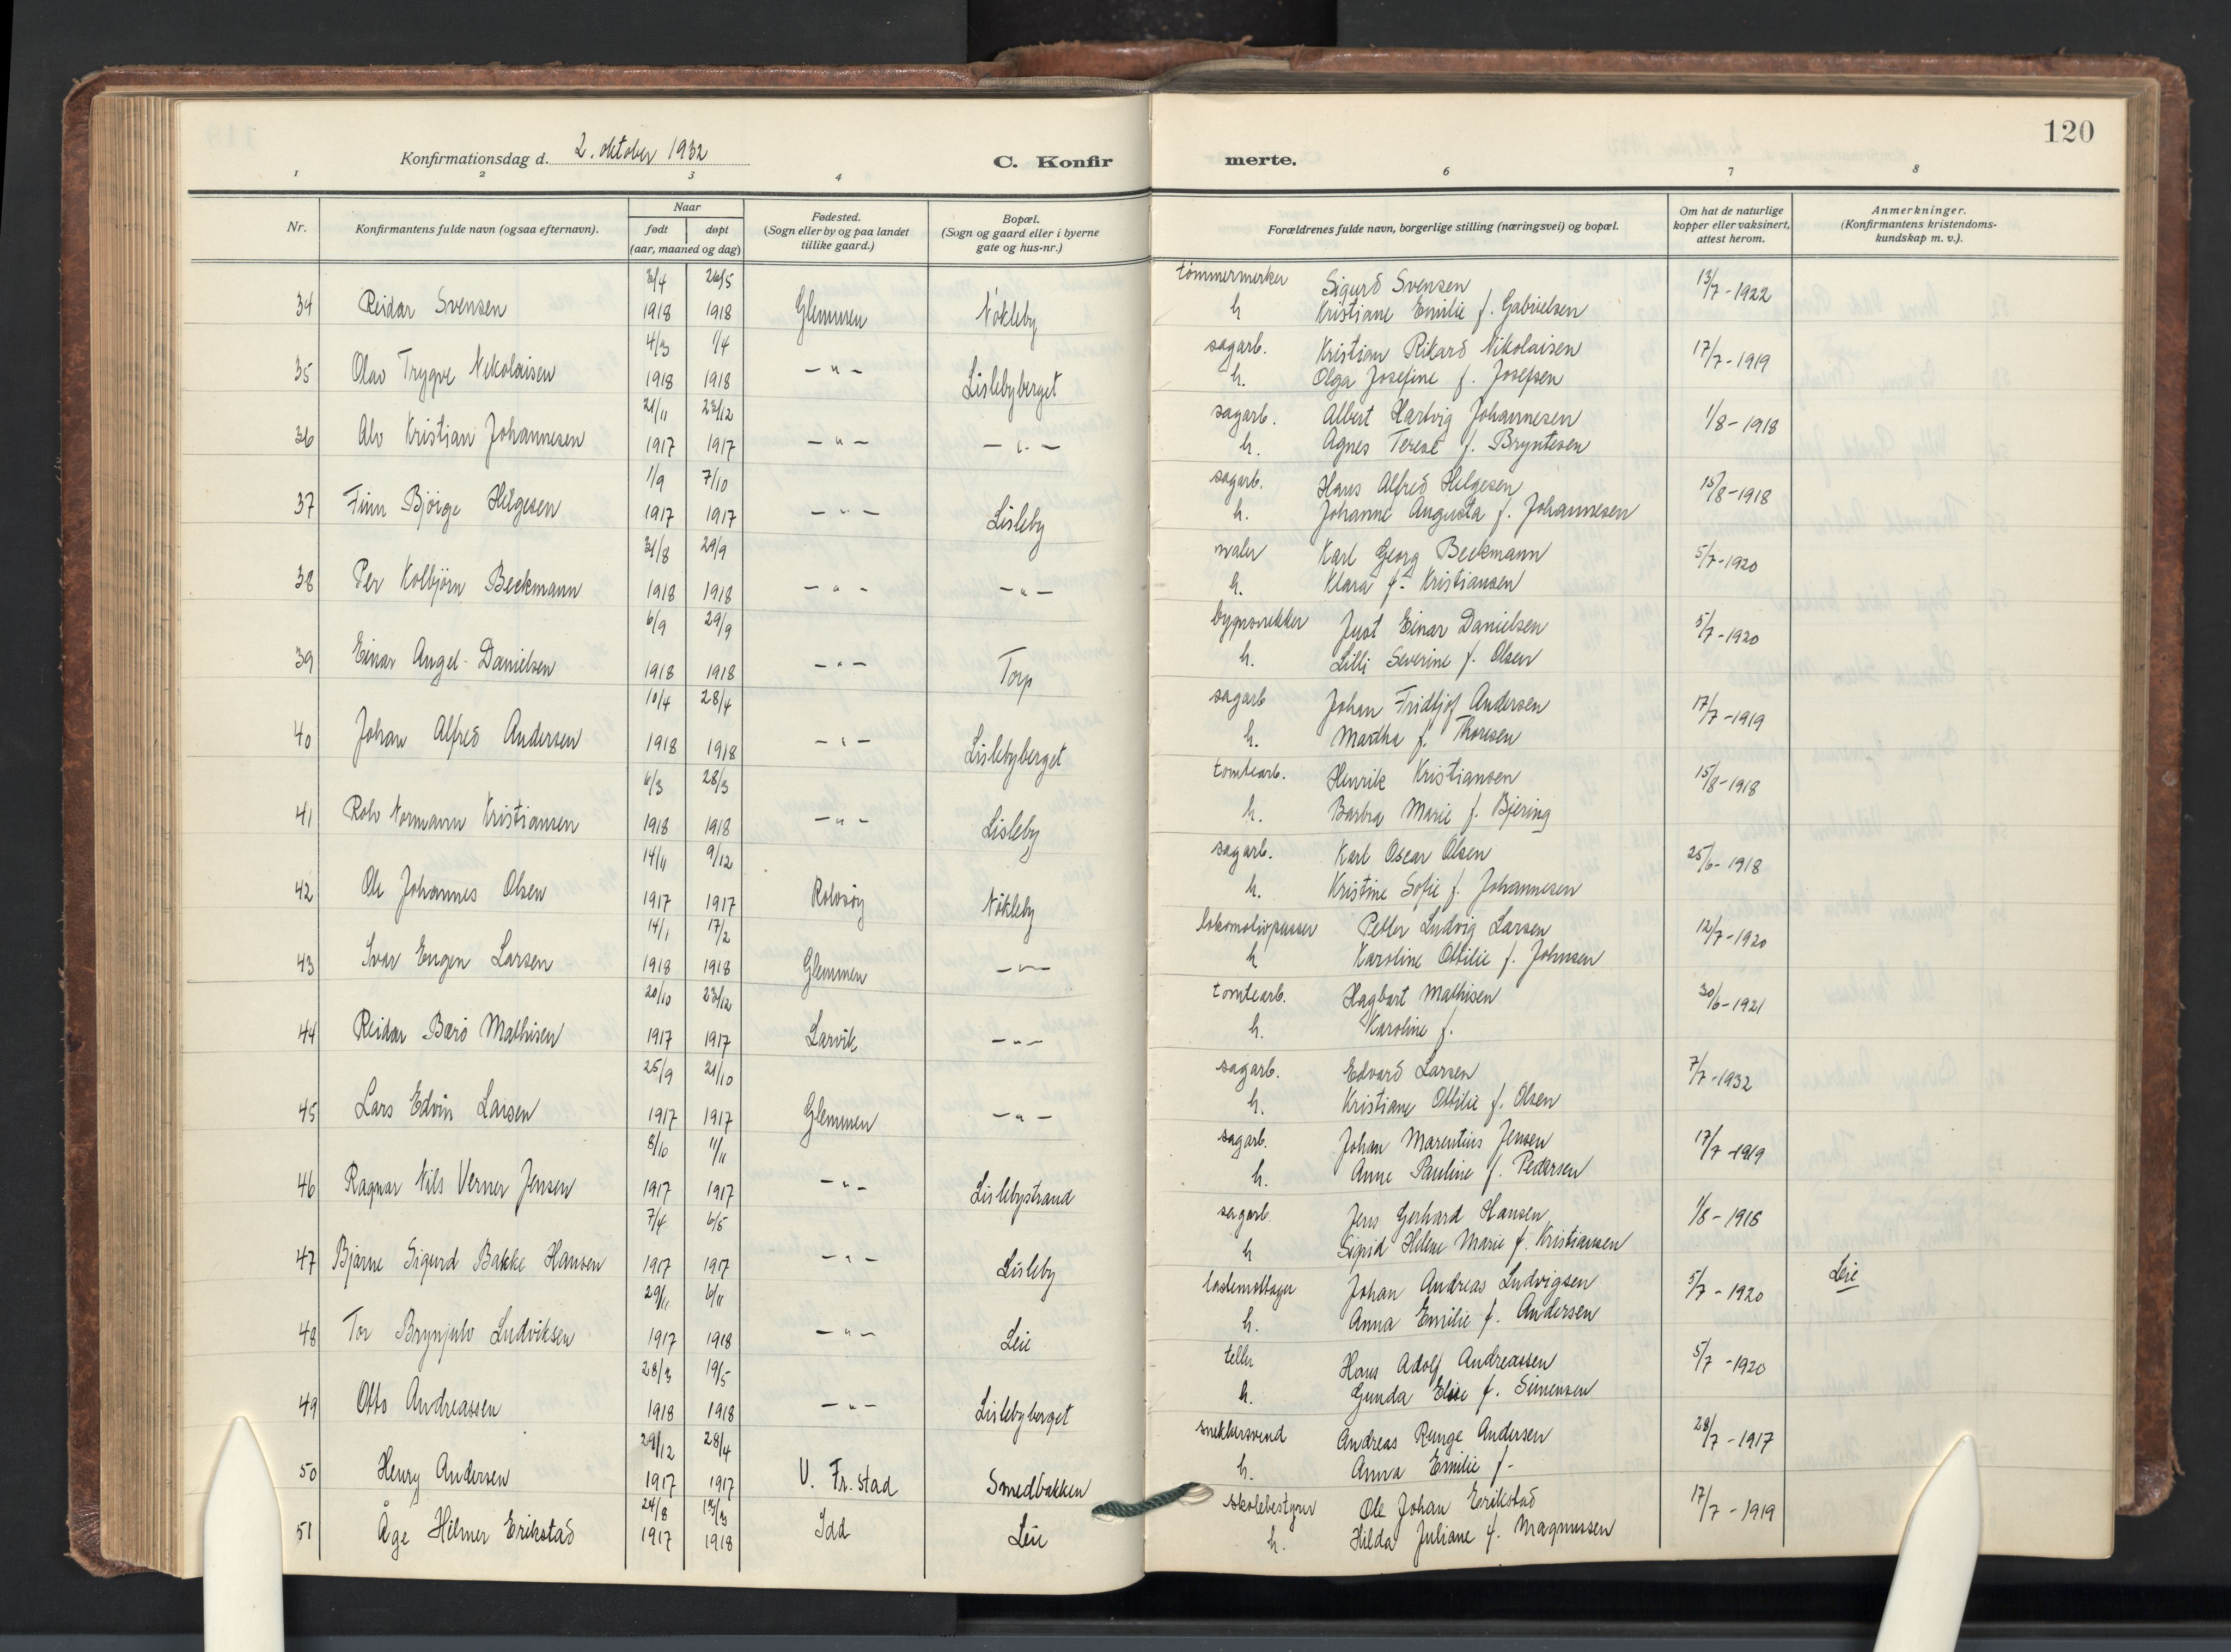 120
Konfirmationsdag d. 2. oktober 1932
C. Konfirmerte.
1 2 3 4 6 7 8
Nr.
Konfirmantens fulde navn (ogsaa efternavn).
Naar
født døpt
(aar, maaned og dag)
Fødested.
(Sogn eller by og paa landet
tillike gaard.)
Bopæl.
(Sogn og gaard eller i byerne
gate og hus-nr.)
Forældrenes fulde navn, borgerlige stilling (næringsvei) og bopæl.
Om hat de naturlige
kopper eller vaksinert,
attest herom.
Anmerkninger.
(Konfirmantens kristendoms-
kundskap m. v.).
3/4 26/5 tömmermerker Sigurd Svensen 13/7 - 1922
34 Reidar Svensen 1918 1918 Glemmen Nökleby h Kristiane Emilie f. Gabrielsen
4/3 1/4 sagarb. Kristian Rikard Nikolaisen 17/7 - 1919
35 Olav Trygve Nikolaisen 1918 1918 -"- Lislebyberget h. Olga Josefine f. Josefsen
21/11 23/12 sagarb. Albert Hartvig Johannesen 1/8 - 1918
36 Alv Kristian Johannesen 1917 1917 -"- -"- h. Agnes Terese f. Bryntesen
1/9 7/10 sagarb. Hans Alfred Helgesen 15/8 - 1918
37 Finn Bjöige Helgesen 1917 1917 -"- Lisleby h. Johanne Augusta f. Johannesen
31/8 29/9 maler Karl Georg Beckmann 5/7 - 1920
38 Per Kolbjörn Beckmann 1918 1918 -"- -"- h. Klara f. Kristiansen
6/9 29/9 Just Einar Danielsen 5/7 - 1920
39 Einar Angel Danielsen 1918 1918 -"- Torp h. Lilli Severine f. Olsen
10/4 28/4 sagarb Johan Fridtjof Andersen 17/7 - 1919
40 Johan Alfred Andersen 1918 1918 -"- Lislebyberget h. Martha f. Thoresen
6/3 28/3 tomtearb. Henrik Kristiansen 15/8 - 1918
41 Rolv Normann Kristiansen 1918 1918 -"- Lisleby h. Barbra Marie f. Bjering
14/11 9/12 sagarb. Karl Oscar Olsen 25/6 - 1918
42 Ole Johannes Olsen 1917 1917 Rolvsöy Nökleby h. Kristine Sofie f. Johannesen
14/1 17/2 lokomotivpusser Petter Ludvig Larsen 12/7 - 1920
43 Ivar Eugen Larsen 1918 1918 Glemmen -"- h Karoline Ottilie f. Johnsen
20/10 23/12 tomtearb. Hagbart Mathisen 30/6 - 1921
44 Reidar Barö Mathisen 1917 1917 Larvik -"- h. Karoline f.
25/9 21/10 sagarb. Edvard Larsen 7/7 - 1932
45 Lars Edvin Larsen 1917 1917 Glemmen -"- h. Kristiane Ottilie f. Olsen
8/10 11/11 sagarb. Johan Marentius Jensen 17/7 - 1919
46 Ragnar Nils Verner Jensen 1917 1917 -"- Lislebystrand h. Anne Pauline f. Pedersen
7/4 6/5 sagarb. Jens Gerhard Hansen 1/8 - 1918
47 Bjarne Sigurd Bakke Hansen 1917 1917 -"- Lisleby h Sigrid Helene Marie f. Kristiansen
29/11 6/11 lastemottager Johan Andreas Ludvigsen 5/7 - 1920 Leie
48 Tor Brynjulv Ludviksen 1917 1918 -"- Leie h. Anna Emilie f. Andersen
28/3 19/5 teller Hans Adolf Andreassen 5/7 - 1920
49 Otto Andreassen 1918 1918 -"- Lislebyberget h. Gunda Elise f. Simensen
29/12 28/4 snekkersvend Andreas Runge Andersen 28/7 - 1917
50 Henry Andersen 1917 1917 V. Fr.stad Smedbakken h. Anna Emilie f.
24/8 13/3 skolebestyrer Ole Johan Erikstad 17/7 - 1919
51 Åge Hilmer Erikstad 1917 1918 Idd Leie h. Hilda Juliane f. Magnussen